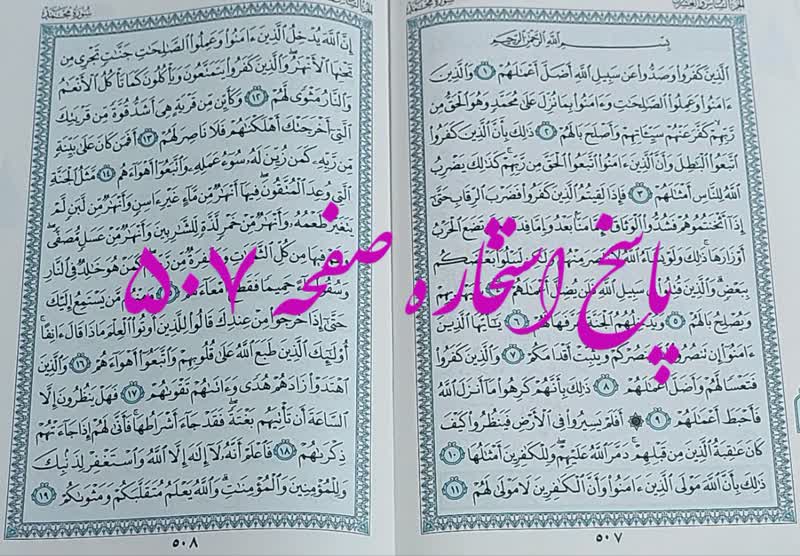 سُورَةُ مُحَمَّدٍ
بِسْمِ اللَّهِ الرَّحْمَٰنِ الرَّحِيمِ
الَّذِينَ كَفَرُوا وَصَدُّوا عَن سَبِيلِ اللَّهِ أَضَلَّ أَعْمَالَهُمْ ١ وَالَّذِينَ
ءَامَنُوا وَعَمِلُوا الصَّالِحَاتِ وَءَامَنُوا بِمَا نُزِّلَ عَلَىٰ مُحَمَّدٍ وَهُوَ الْحَقُّ مِن
رَّبِّهِمْ كَفَّرَ عَنْهُمْ سَيِّئَاتِهِمْ وَأَصْلَحَ بَالَهُمْ ٢ ذَٰلِكَ بِأَنَّ الَّذِينَ كَفَرُوا
اتَّبَعُوا الْبَاطِلَ وَأَنَّ الَّذِينَ ءَامَنُوا اتَّبَعُوا الْحَقَّ مِن رَّبِّهِمْ كَذَٰلِكَ يَضْرِبُ
اللَّهُ لِلنَّاسِ أَمْثَالَهُمْ ٣ فَإِذَا لَقِيتُمُ الَّذِينَ كَفَرُوا فَضَرْبَ الرِّقَابِ حَتَّىٰ
إِذَا أَثْخَنتُمُوهُمْ فَشُدُّوا الْوَثَاقَ فَإِمَّا مَنًّا بَعْدُ وَإِمَّا فِدَاءً تَضَعَ الْحَرْبُ
أَوْزَارَهَا ذَٰلِكَ وَلَوْ يَشَاءُ اللَّهُ لَانتَصَرَ مِنْهُمْ لِّيَبْلُوَا بَعْضَكُم
بِبَعْضٍ وَالَّذِينَ قُتِلُوا سَبِيلِ اللَّهِ فَلَن يُضِلَّ أَعْمَالَهُمْ
وَيُصْلِحُ بَالَهُمْ ٥ وَيُدْخِلُهُمُ الْجَنَّةَ عَرَّفَهَا لَهُمْ ٦ يَا أَيُّهَا الَّذِينَ
ءَامَنُوا إِن تَنصُرُوا يَنصُرْكُمْ وَيُثَبِّتْ أَقْدَامَكُمْ ٧ وَالَّذِينَ كَفَرُوا
فَتَعْسًا لَّهُمْ وَأَضَلَّ أَعْمَالَهُمْ ٨ ذَٰلِكَ بِأَنَّهُمْ كَرِهُوا مَا أَنزَلَ اللَّهُ
فَأَحْبَطَ أَعْمَالَهُمْ ٩ أَفَلَمْ يَسِيرُوا فِي الْأَرْضِ فَيَنظُرُوا كَيْفَ
كَانَ عَاقِبَةُ الَّذِينَ مِن قَبْلِهِمْ دَمَّرَ اللَّهُ عَلَيْهِمْ وَلِلْكَافِرِينَ أَمْثَالُهَا ١٠
ذَٰلِكَ بِأَنَّ اللَّهَ مَوْلَى الَّذِينَ ءَامَنُوا وَأَنَّ الْكَافِرِينَ لَا مَوْلَىٰ لَهُمْ ١١
٥٠٧
سُورَةُ مُحَمَّدٍ
إِنَّ اللَّهَ يُدْخِلُ الَّذِينَ ءَامَنُوا وَعَمِلُوا الصَّالِحَاتِ جَنَّاتٍ تَجْرِي مِن
تَحْتِهَا الْأَنْهَارُ وَالَّذِينَ كَفَرُوا يَتَمَتَّعُونَ وَيَأْكُلُونَ كَمَا تَأْكُلُ الْأَنْعَامُ
وَالنَّارُ مَثْوًى لَّهُمْ ١٢ وَكَأَيِّن مِّن قَرْيَةٍ هِيَ أَشَدُّ قُوَّةً مِّن قَرْيَتِكَ
الَّتِي أَخْرَجَتْكَ أَهْلَكْنَاهُمْ فَلَا نَاصِرَ لَهُمْ ١٣ أَفَمَن كَانَ عَلَىٰ بَيِّنَةٍ
مِّن رَّبِّهِ كَمَن زُيِّنَ لَهُ سُوءُ عَمَلِهِ وَاتَّبَعُوا أَهْوَاءَهُم ١٤ مَّثَلُ الْجَنَّةِ
الَّتِي وُعِدَ الْمُتَّقُونَ فِيهَا أَنْهَارٌ مِّن مَّاءٍ غَيْرِ ءَاسِنٍ وَأَنْهَارٌ مِّن لَّبَنٍ لَّمْ
يَتَغَيَّرْ طَعْمُهُ وَأَنْهَارٌ مِّنْ خَمْرٍ لَّذَّةٍ لِّلشَّارِبِينَ وَأَنْهَارٌ مِّنْ عَسَلٍ مُّصَفًّى
وَلَهُمْ فِيهَا مِن كُلِّ الثَّمَرَاتِ وَمَغْفِرَةٌ مِّن رَّبِّهِمْ كَمَنْ هُوَ خَالِدٌ فِي النَّارِ
وَسُقُوا مَاءً حَمِيمًا فَقَطَّعَ أَمْعَاءَهُمْ وَمِنْهُم مَّن يَسْتَمِعُ إِلَيْكَ
حَتَّىٰ إِذَا خَرَجُوا مِنْ عِندِكَ قَالُوا لِلَّذِينَ أُوتُوا الْعِلْمَ مَاذَا قَالَ ءَانِفًا
أُولَٰئِكَ الَّذِينَ طَبَعَ اللَّهُ عَلَىٰ قُلُوبِهِمْ وَاتَّبَعُوا أَهْوَاءَهُمْ ١٦ وَالَّذِينَ
اهْتَدَوْا زَادَهُمْ هُدًى وَءَاتَاهُمْ تَقْوَاهُمْ ١٧ فَهَلْ يَنظُرُونَ إِلَّا
السَّاعَةَ أَن تَأْتِيَهُم بَغْتَةً فَقَدْ جَاءَ أَشْرَاطُهَا فَأَنَّىٰ لَهُمْ إِذَا جَاءَتْهُمْ
ذِكْرَاهُمْ ١٨ فَاعْلَمْ أَنَّهُ لَا إِلَٰهَ إِلَّا اللَّهُ وَاسْتَغْفِرْ لِذَنبِكَ
وَلِلْمُؤْمِنِينَ وَالْمُؤْمِنَاتِ وَاللَّهُ يَعْلَمُ مُتَقَلَّبَكُمْ وَمَثْوَاكُمْ ١٩
٥٠٨
پاسخ استخاره صفحه ۵۰۷